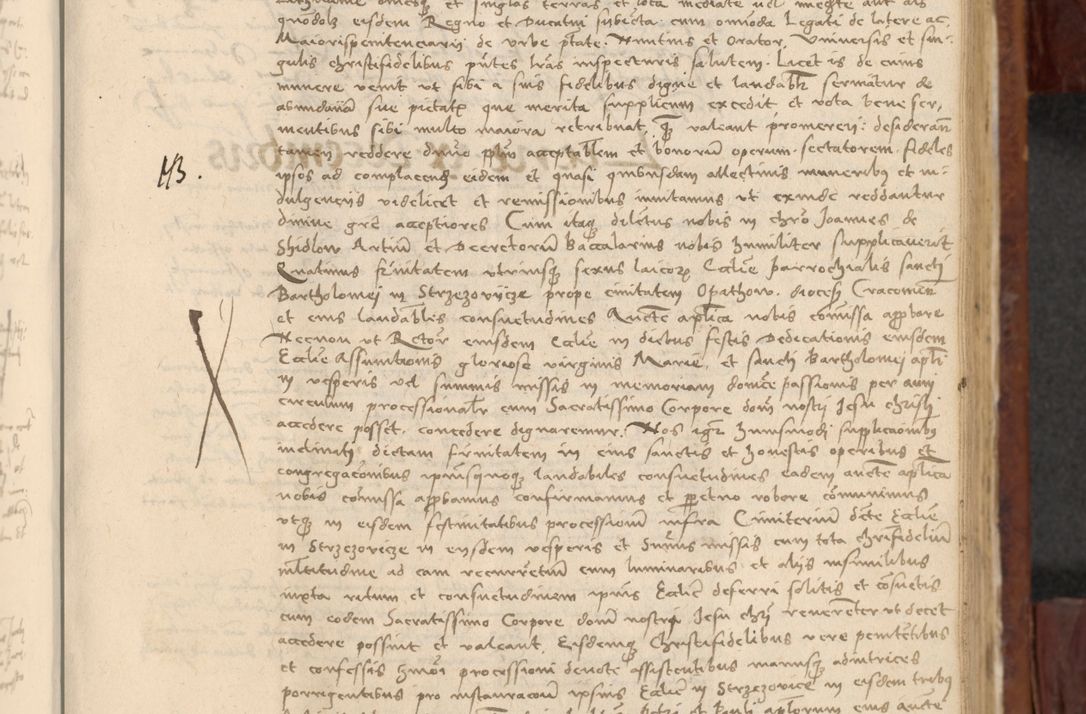 quodolz eisdem Regno et Ducatui subiecta cum omnioda Legati de latere ac
Maiorispenitenciarij de vrbe ptate Nuntius et Orator, Vniuersis et sin-
gulis christifidelibus pntes lras inspecturis salutem. Licet is de cuius
munere venit vt sibi a suis fidelibus digne et laudablr seruiatur de
abundantia sue pietatis que merita supplicum excedit et vota bene ser,
uientibus sibi multo maiora retribuat, q valeant promereri: desideran
tamen reddere dnno pplm acceptablem et bonorum operum sectatorem fideles
ipsos ad complacend eidem et quasi quibusdam allectiuis muneribus et in-
HB.
dulgencijs videlicet et remissionibus inuitamus vt exinde reddantur
diuine gre acceptiores Cum itaq dilectus nobis in chro Joannes de
Shidlow Artium et Decretorum Baccalarius nobis humiliter supplicauerit
Quatinus frnitatem vtriusq sexus laicorz Ecclie parrochialis sancti
Bartholomei in Strzezovijcze prope ciuitatem Opathow diocesis Cracouien
et eius laudabiles consuetudines Aucte aplica nobis comissa approbare
Necnon vt Rector eiusdem Ecclie in diebus festis Dedicationis eiusdem
Ecclie Assumtionis gloriose virginis Marie, et sancti Bartholomei apli
in vesperis vel summis missis in memoriam domice passionis per anni
circulum processionalr cum Sacratissimo Corpore domi nostri Jesu christi
accedere posset concedere dignaremur. Nos igr huiusmodi supplicacionibus
inclinati dictam frnitatem in eius sanctis et honestis operibus et
congregacionibus ipsiusquoq laudabiles consuetudines eadem aucte aplica
nobis comissa approbamus confirmamus et perpetuo robore communimus
vtq in eisdem festiuitatibus processionum infra Cimiterium dicte Ecclie
in Strzezovicze in eysdem vesperis et Sumus missis cum tota chrifidelium
multitudine ad eam recurrentium cum luminaribus et alijs insimilibus
iuxta ritum et consuetudinem ipsius Ecclie deferri solitis et consuetis
cum eodem Sacratissimo Corpore domi nostri Jesu chri reuerenter vt decet
accedere possint et valeant, Eisdemq Christifidelibus vere penitentibus
et confessis huoi processioni deuote assistentibus manusq adiutrices
porrigentibus pro instauracione ipsius Ecclie in Strzezovice in eisdem tribus